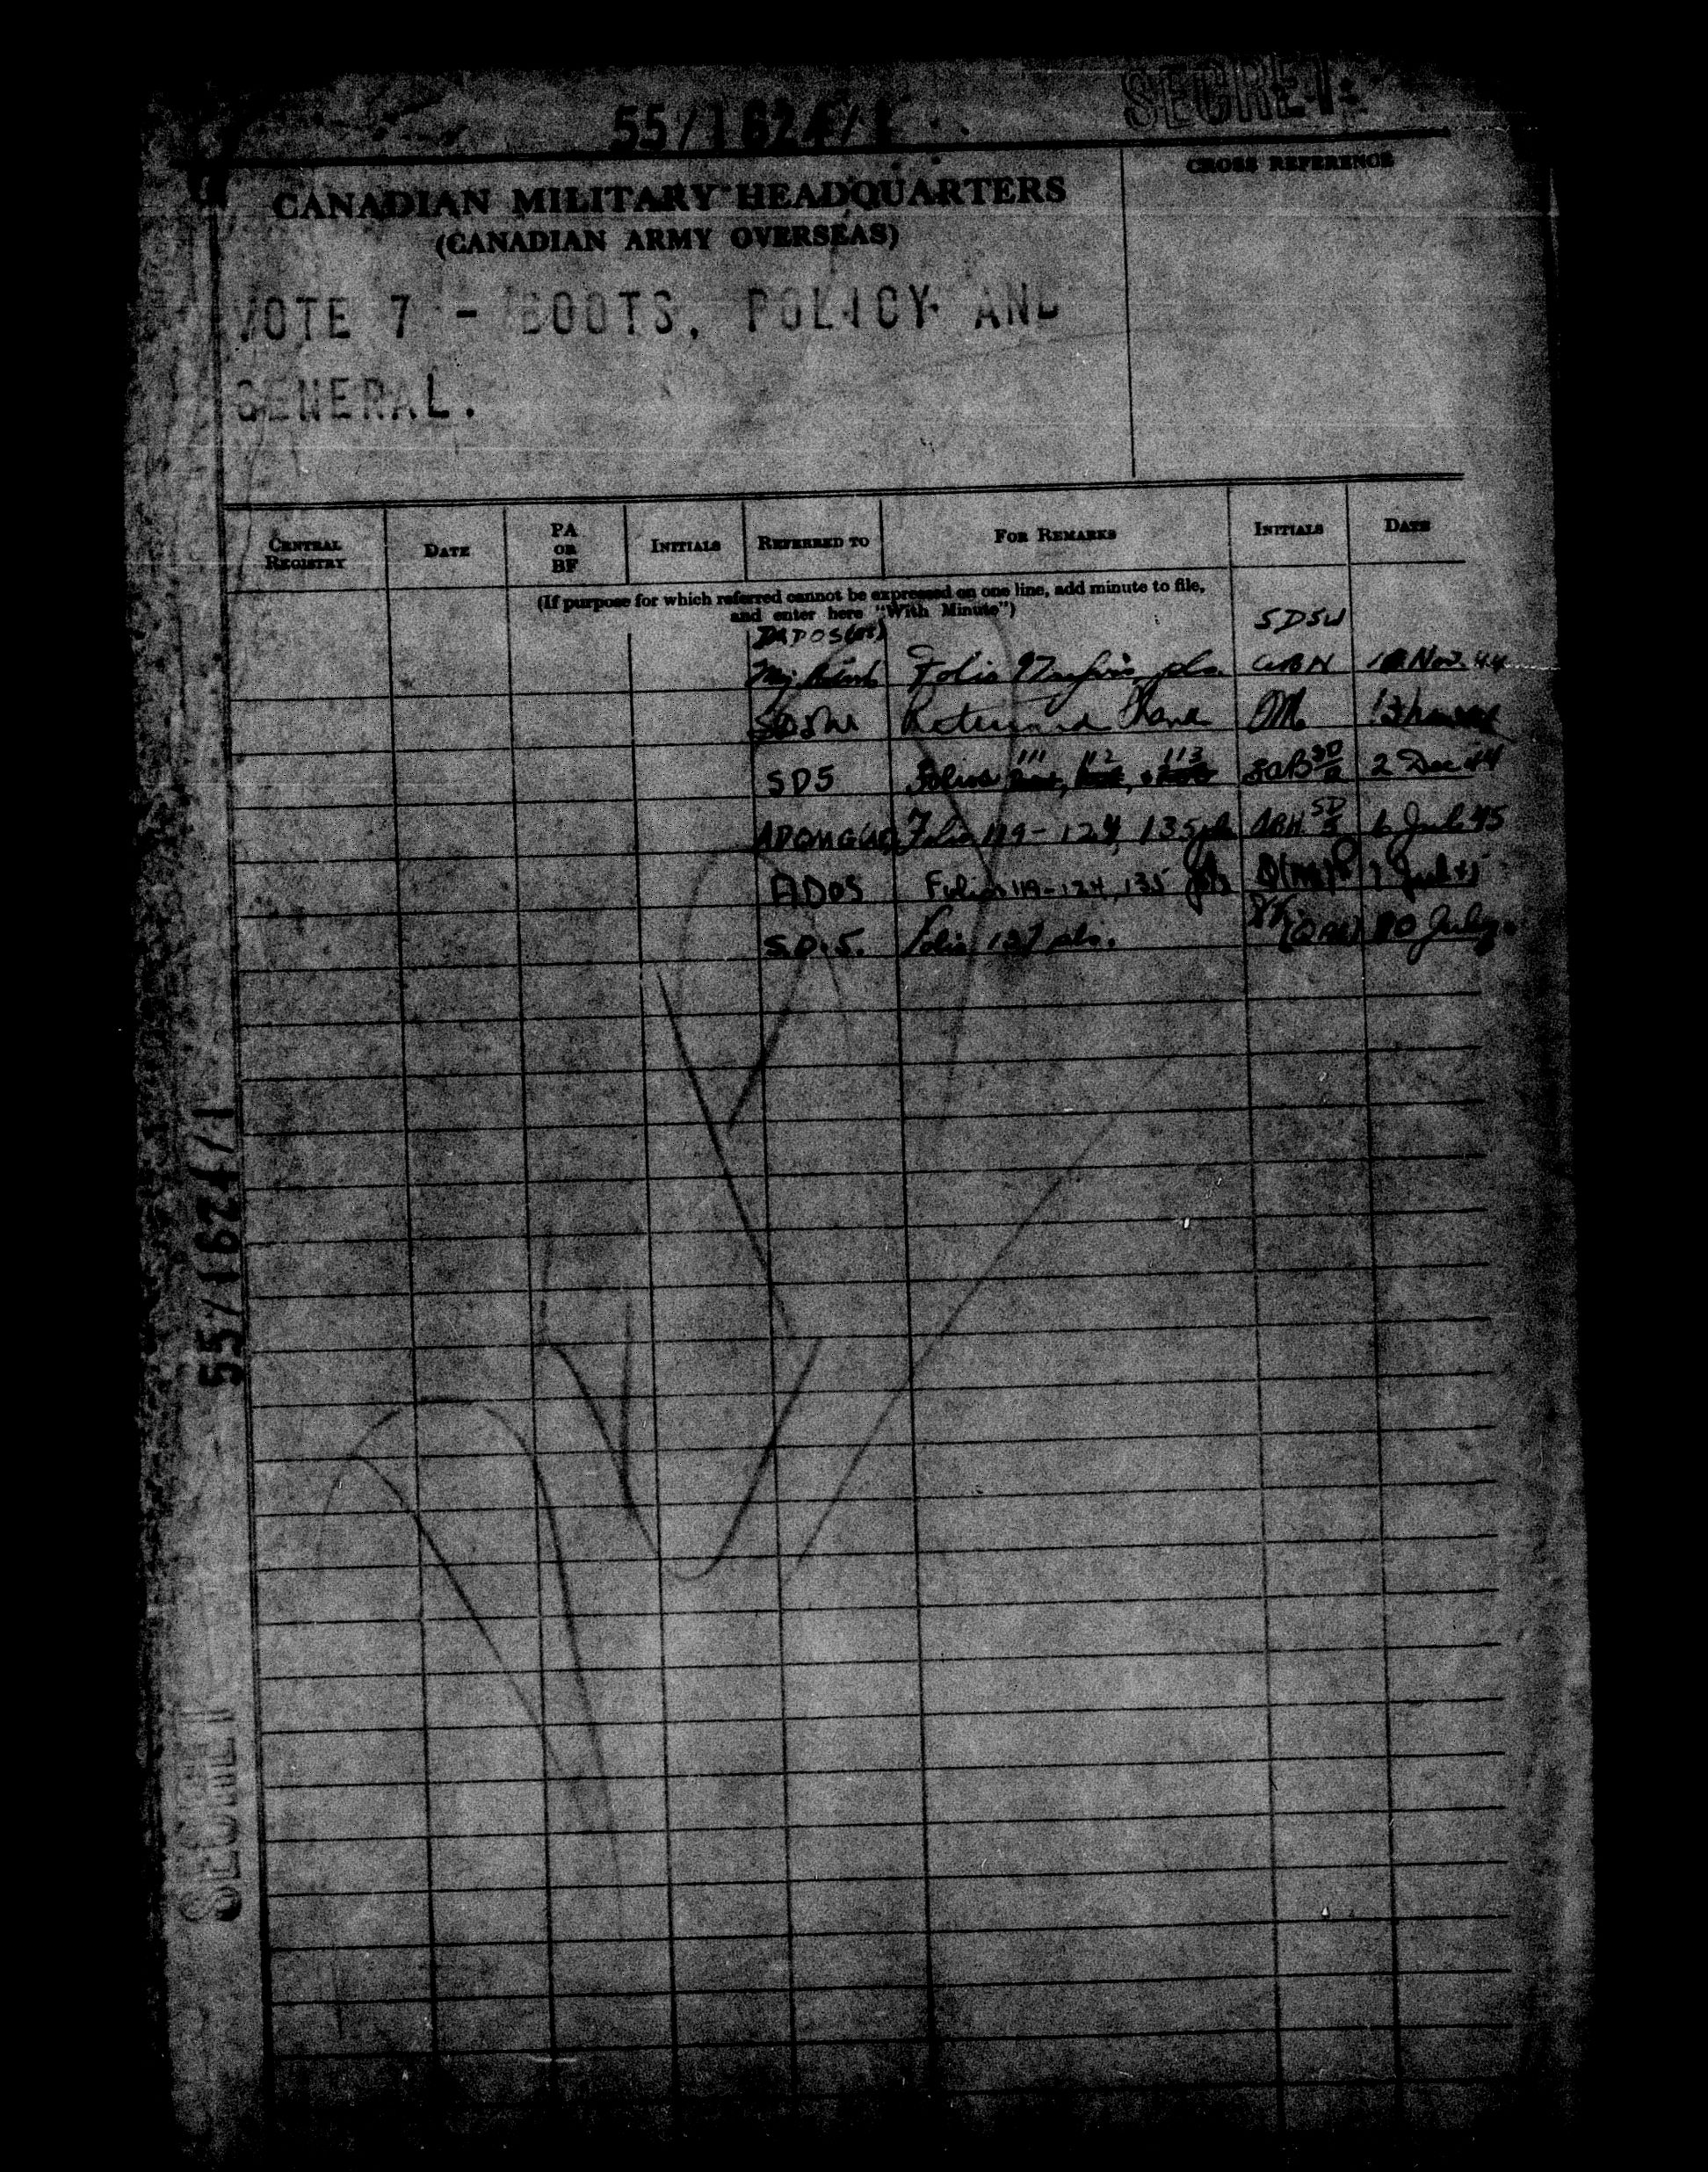 55/1624/1
SECRET
CROSS REFERENCE
CANADIAN MILITARY HEADQUARTERS
(CANADIAN ARMY OVERSEAS)
VOTE 7 - BOOTS, POLICY AND
GENERAL.
CENTRAL REGISTRY DATE PA OR BF INITIALS REFERRED TO FOR REMARKS INITIALS DATE
(If purpose for which referred cannot be expressed on one line, add minute to file,
and enter here "With Minute")
SDSW
Folio pls. Nov. 44
Returned
SD5 Folios 111, 112, 113 2 Dec 44
Folio 119-124, 135 6 Jul 45
ADOS Folios 119-124, 135 7 Jul 45
S.D.5. Folio 137 pls. July
55/1624/1
SECRET